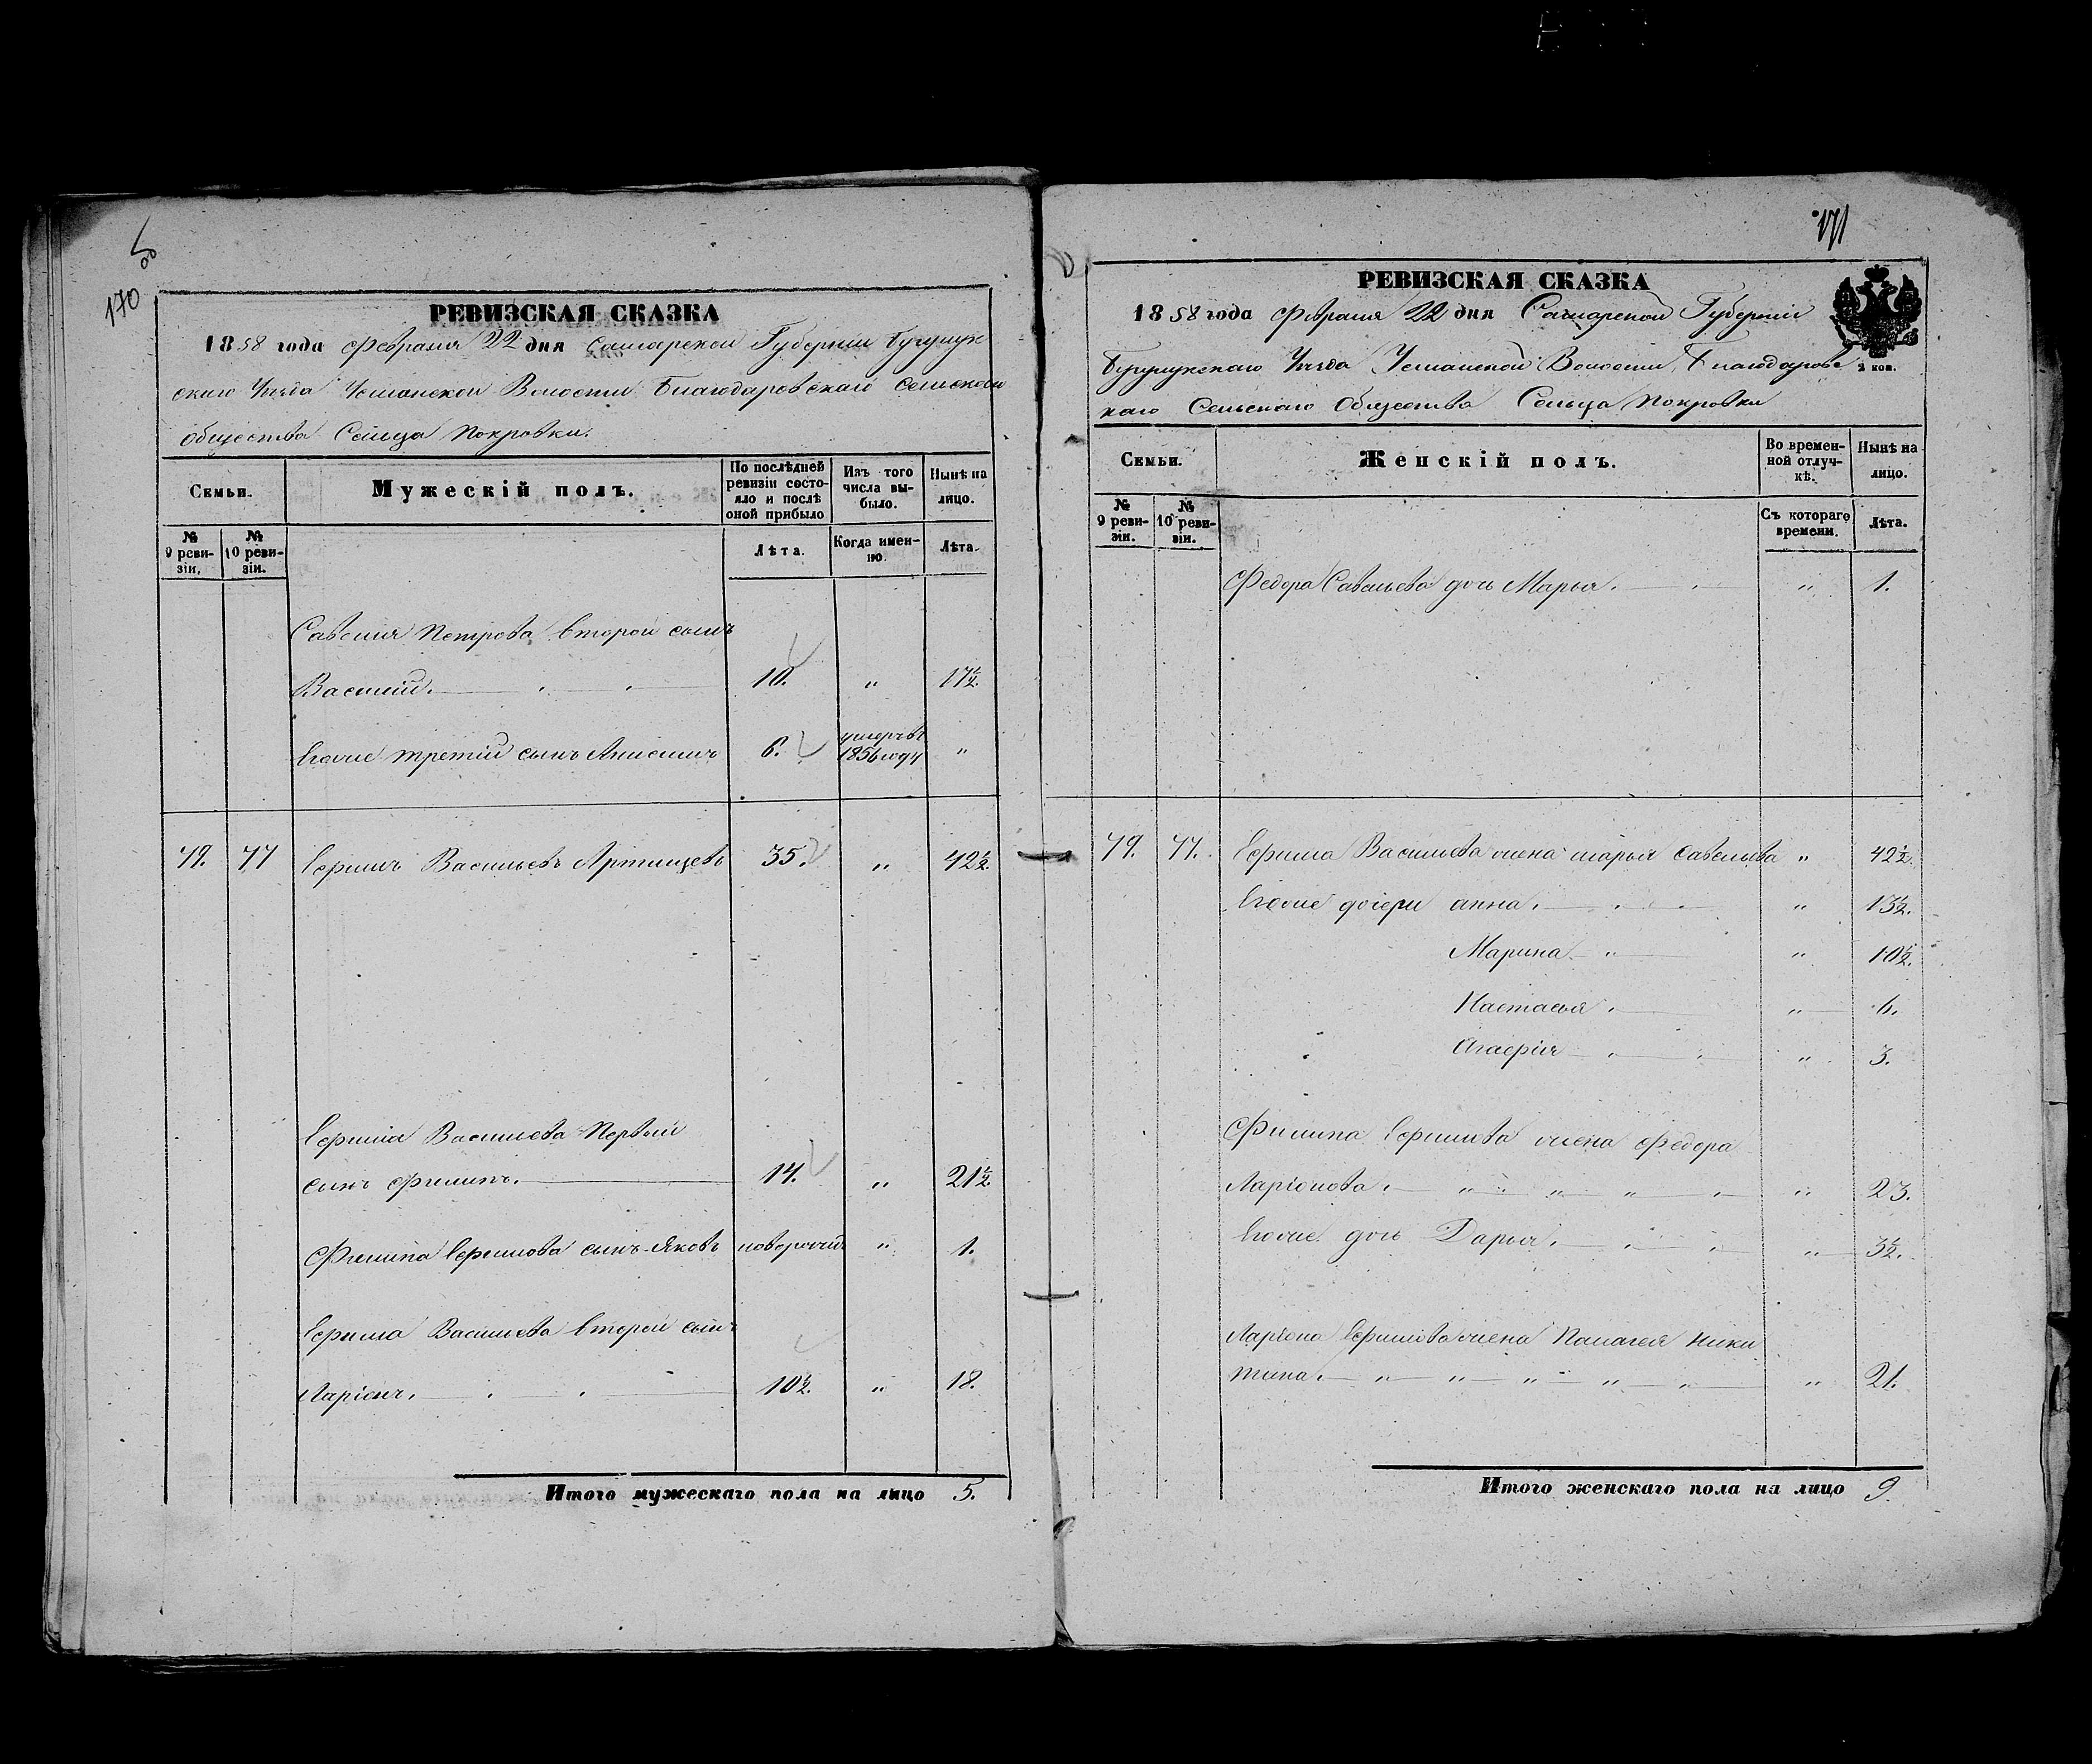 170
РЕВИЗСКАЯ СКАЗКА
1858 года Февраля 22 дня Самарской Губернии Бугурук
скаго Уезда Усманской Волости Благодаровскаго Сельскаго
общества Сельца Покровки.
Семьи.
Мужескій полъ.
По послѣдней ревизіи состояло и послѣ оной прибыло
Изъ того числа выбыло.
Нынѣ на лицо.
№ 9 ревизіи.
№ 10 ревизіи.
Лѣта.
Когда именно.
Лѣта.
Савелия Петрова второй сынъ
Василий. 10. " 17½.
Егоже третий сынъ Анисимъ 6. умеръ въ 1856 году "
79. 77 Ефимъ Васильевъ Артищевъ 35. " 42½.
Ефима Васильева Первый
сынъ Филипъ. 14. " 21½.
Филипа Ефимова сынъ Яковъ новорожд " 1.
Ефима Васильева второй сынъ
Ларіонъ. 10½. " 18.
Итого мужескаго пола на лицо 5.
171
РЕВИЗСКАЯ СКАЗКА
1858 года Февраля 22 дня Самарской Губерніи
Бугурукскаго Уезда Усманской Волости Благодаровс
каго Сельскаго Общества Сельца Покровки
2 коп.
Семьи.
Женскій полъ.
Во временной отлучкѣ.
Нынѣ на лицо.
№ 9 ревизіи.
№ 10 ревизіи.
Съ котораго времени.
Лѣта.
Федора Савельева дочь Марья. " 1.
79. 77. Ефима Васильева жена марья Савельева " 42½.
Егоже дочери анна. " 13½.
Марина " " 10½.
Настасья. " 6.
Агафія " 3.
Филипа Ефимова жена Федора
Ларіонова. " " " " " 23.
Егоже дочь Дарья. " 3½.
Ларіона Ефимова жена Палагея Ники
тина. " " " " " " 21.
Итого женскаго пола на лицо 9.